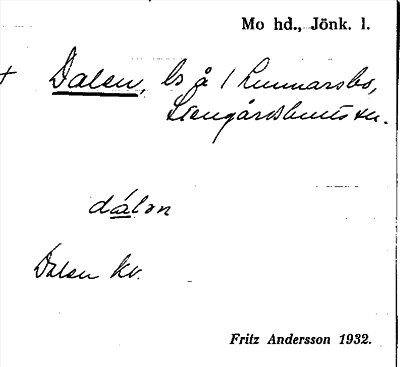 Mo hd., Jönk. l.
+ Dalen, ls å 1 Gunnarsbo,
Stengårdshults sn.
dálən
Dalen kv.
Fritz Andersson 1932.